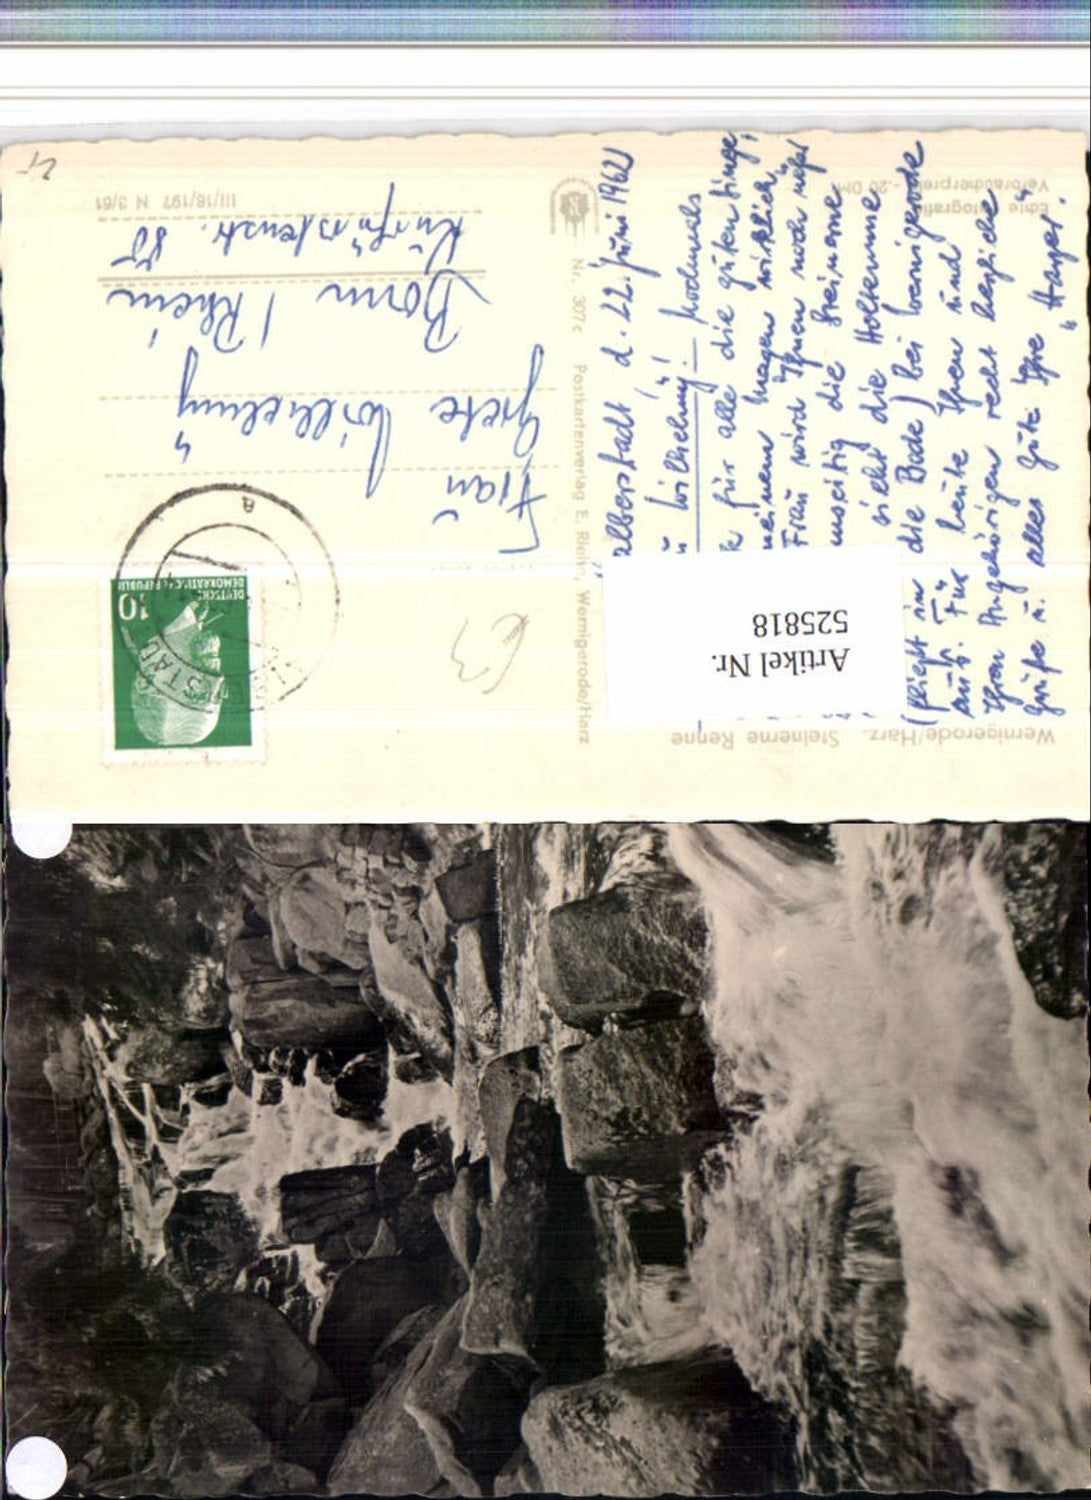 Wernigerode/Harz. Steinerne Renne
Echte Fotografie
Verbraucherpreis -,20 DM
Halberstadt d. 22. Juni 1962
Wilhelmy! – Nochmals
für alle die guten Dinge,
meinem Magen wirklich
Frau wird Ihnen noch
die Steinerne
sieht die Holtemme
(fließt in die Bode) bei Wernigerode
aus. Für heute Ihnen und
Ihren Angehörigen recht herzliche
Grüße u. alles Gute Ihre "
Nr. 307c Postkartenverlag E. Riehn, Wernigerode/Harz
DEUTSCHE
DEMOKRATISCHE REPUBLIK
10
a
Frau
Grete Wilhelmy
Bonn / Rhein
Kurfürstenstr. 80
III/18/197 N 3/61
Artikel Nr.
525818